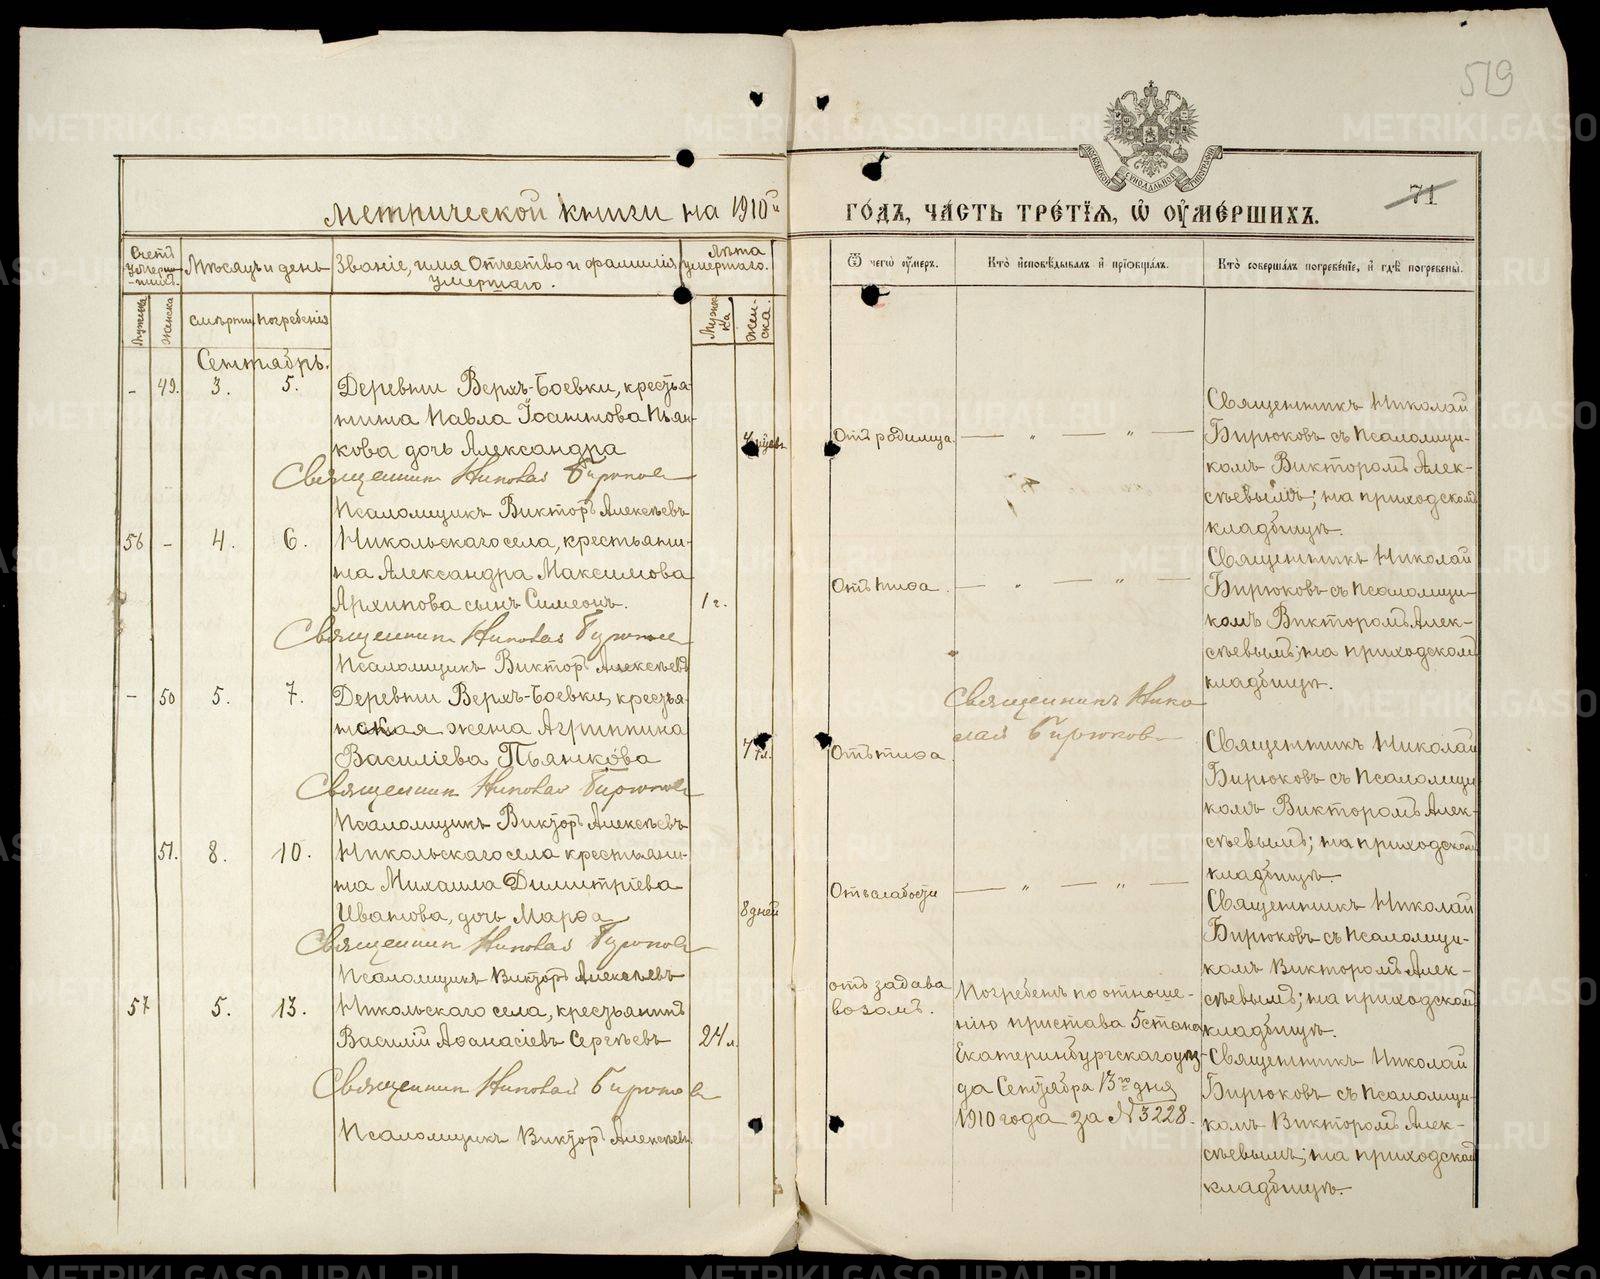 519
71
метрической книги на 1910й
ГО́ДЪ, ЧА́СТЬ ТРЕ́ТЇѦ, Ѽ ОУ҆МЕ́РШИХЪ.
МОСКОВСКОЙ СѴНОДАЛЬНОЙ ТИПОГРАФІИ
Счетъ умерш-ихъ.
Мѣсяцъ и день
Званіе, имя Отчество и фамилія умершаго.
Лѣта умершаго.
Ѿ чегѡ ᲂу҆́меръ.
Кто̀ и҆сповѣ́дывалъ и҆ прїѻбща́лъ.
Кто̀ соверша́лъ погребе́нїе, и҆ гдѣ̀ погребены̀.
Мужска
Женска
смерти
погребенія
Мужска
Женска.
Сентябрь.
- 49. 3. 5.
Деревни Верхъ-Боевки, крестья-
нина Павла Іоаннова Пьян-
кова дочь Александра
Священник Николай Бирюков
Псаломщикъ Викторъ Алексѣевъ
Отъ родимца. — „ — „ —
Священникъ Николай
Бирюковъ съ псаломщи-
комъ Викторомъ Алек-
сѣевымъ; на приходскомъ
кладбищѣ.
56 - 4. 6.
Никольскаго села, крестьяни-
на Александра Максимова
Архипова сынъ Симеонъ.
1 г.
Священник Николай Бирюков
Псаломщикъ Викторъ Алексѣевъ
Отъ тифа. — „ — „ —
Священникъ Николай
Бирюковъ съ псаломщи-
комъ Викторомъ Алек-
сѣевымъ; на приходском
кладбищѣ.
- 50 5. 7.
Деревни Верхъ-Боевки, крестья-
нская жена Агриппина
Василіева Пьянкова
Священник Николай Бирюков
Псаломщикъ Викторъ Алексѣевъ
Отъ тифа
Священникъ Нико
лай Бирюковъ
Священникъ Николай
Бирюковъ съ псаломщи
комъ Викторомъ Алек-
сѣевымъ; на приходском
кладбищѣ.
51. 8. 10.
Никольскаго села крестьяни-
на Михаила Димитріева
Иванова, дочь Марѳа
8 дней
Священник Николай Бирюков
Псаломщикъ Викторъ Алексѣевъ
Отъ слабости — „ — „ —
Священникъ Николай
Бирюковъ съ псаломщи-
комъ Викторомъ Алек-
сѣевымъ; на приходской
кладбищѣ.
57 5. 13.
Никольскаго села, крестьянинъ
Василій Аѳанасіевъ Сергѣевъ
24 л.
Священник Николай Бирюков
Псаломщикъ Викторъ Алексѣевъ.
отъ задава
возомъ.
Погребенъ по отноше-
нію пристава 5 стана
Екатеринбургскаго уѣз-
да Сентября 13го дня
1910 года за № 3228.
Священникъ Николай
Бирюковъ съ псаломщи-
комъ Викторомъ Алек-
сѣевымъ; на приходском
кладбищѣ.
METRIKI.GASO-URAL.RU